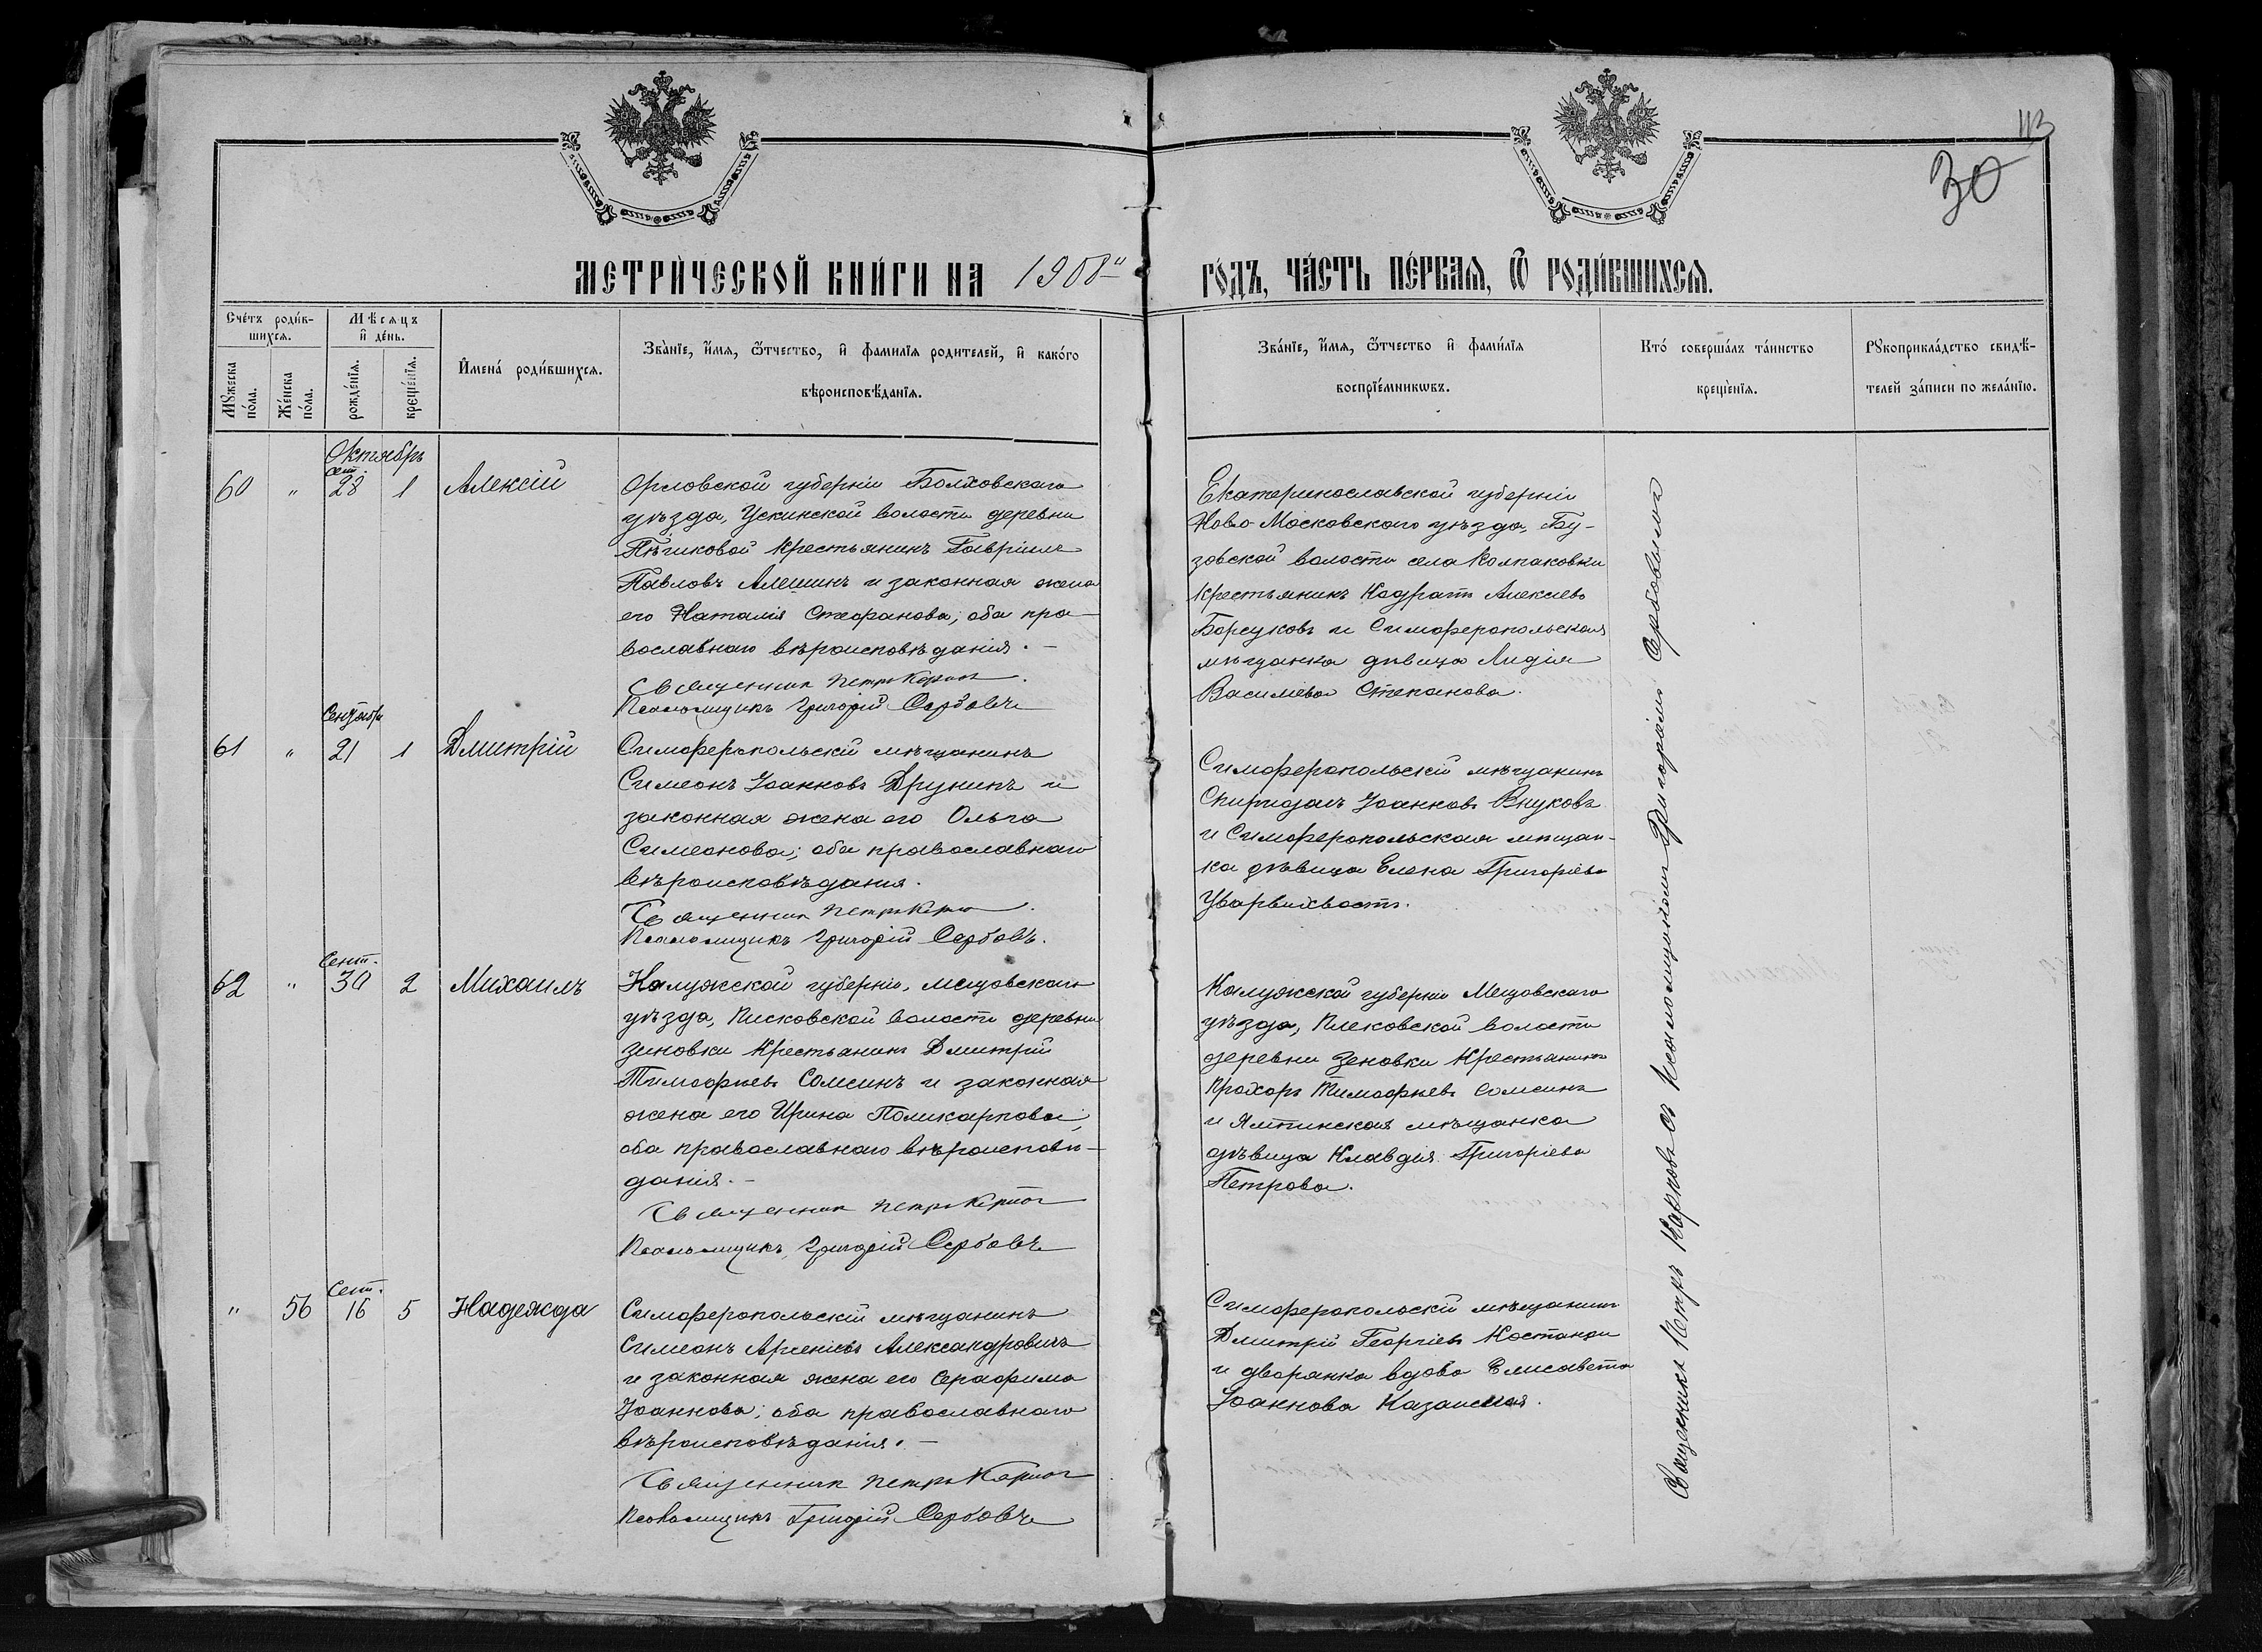 113
30
МЕТРИ́ЧЕСКОЙ КНИ́ГИ НА 1908й
ГО́ДЪ, ЧА́СТЬ ПЕ́РВАЯ, Ѿ РОДИ́ВШИХСЯ.
Сче́тъ роди́в-
шихся.
Мѣ́сяцъ
и҆ де́нь.
Мꙋ́жеска
по́ла.
Же́нска
по́ла.
рожде́нїя.
креще́нїя.
И҆мена́ роди́вшихся.
Зва́нїе, и҆́мя, ѻ҆́тчество, и҆ фами́лїя родителей, и҆ како́го
вѣроисповѣ́данїя.
Зва́нїе, и҆́мя, ѻ҆́тчество и҆ фами́лїя
воспрїе́мникѡвъ.
Кто̀ соверша́лъ та́инство
креще́нїя.
Рꙋкоприкла́дство свидѣ́-
телей за́писи по жела́нїю.
Октябрь
60 " сент. 28 1 Алексій
Орловской губерніи Болховскаго
уѣзда, Ускинской волости деревни
крестьянинъ Гавріилъ
Павловъ Алешинъ и законная жена
его Наталія Стефанова; оба пра-
вославнаго вѣроисповѣданія. –
Священник Петръ Карпов.
Псаломщикъ Григорій Сербовъ
Екатеринославской губерніи
Ново-Московскаго уѣзда, Бу-
зовской волости села Колпаковки
крестьянинъ Кодратъ Алексіевъ
Борсуковъ и Симферопольская
мѣщанка дѣвица Лидія
Василіева Степанова.
Сентябрь
61 " 21 1 Дмитрій
Симферопольскій мѣщанинъ
Симеонъ Іоанновъ Друнинъ и
законная жена его Ольга
Симеонова; оба православнаго
вѣроисповѣданія.
Священник Петръ Карпов.
Псаломщикъ Григорій Сербовъ.
Симферопольскій мѣщанинъ
Спиридонъ Іоанновъ Внуковъ
и Симферопольская мѣщан-
ка дѣвица Елена Григоріева
Уварвихвостъ.
Сент.
62 " 30 2 Михаилъ
Калужской губерніи, Мещовскаго
уѣзда, Писковской волости деревни
Зиновки крестьянинъ Дмитрій
Тимофѣевъ Сомсинъ и законная
жена его Ирина Поликарпова;
оба православнаго вѣроисповѣ-
данія. –
Священник Петръ Карпов
Псаломщикъ Григорій Сербовъ
Калужской губерніи Мещовскаго
уѣзда, Плековской волости
деревни Зеновки крестьянинъ
Прохоръ Тимофѣевъ Сомсинъ
и Ялтинская мѣщанка
дѣвица Клавдія Григоріева
Петрова.
Сент.
" 56 16 5 Надежда
Симферопольскій мѣщанинъ
Симеонъ Арсеніевъ Александровичъ
и законная жена его Серафима
Іоаннова; оба православнаго
вѣроисповѣданія. –
Священник Петръ Карпов
Псаломщикъ Григорій Сербовъ
Симферопольскій мѣщанинъ
Дмитрій Георгіевъ Костанди
и дворянка вдова Елисавета
Іоаннова Казанская.
Священникъ Петръ Карповъ съ Псаломщикомъ Григоріемъ Сербовымъ